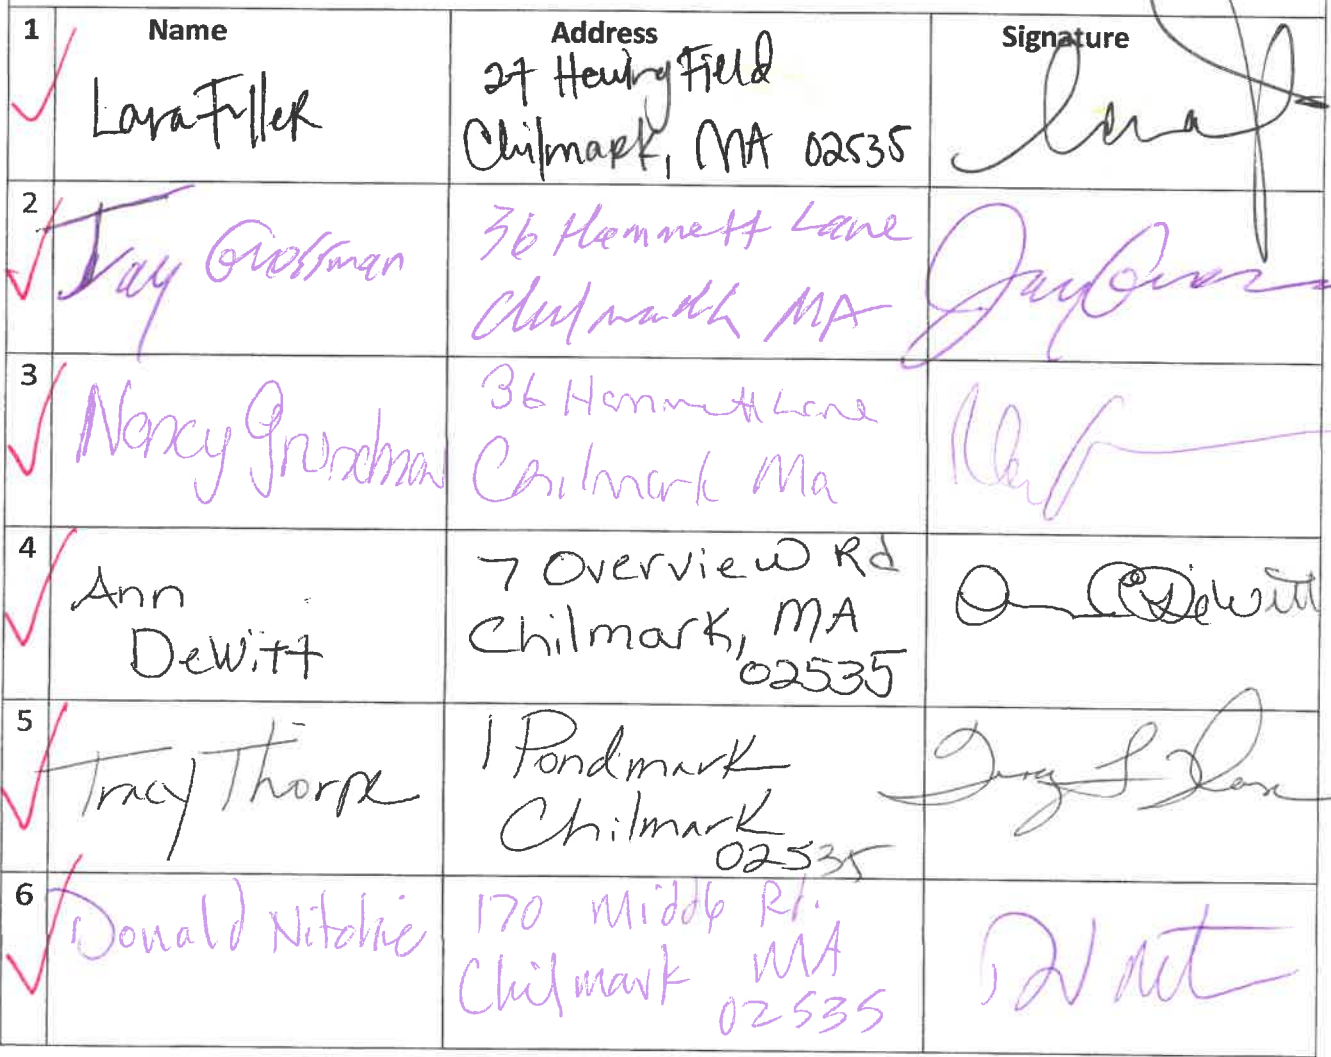 1 Name Address Signature
Lara Filler
27 Hewing Field
Chilmark, MA 02535
2
Jay Grossman
36 Hammett Lane
Chilmark MA
3
Nancy Grundman
36 Hammett Lane
Chilmark Ma
4
Ann
DeWitt
7 Overview Rd
Chilmark, MA
02535
Ann C DeWitt
5
Tracy Thorpe
1 Pondmark
Chilmark
02535
6
Donald Nitchie
170 Middle Rd.
Chilmark MA
02535